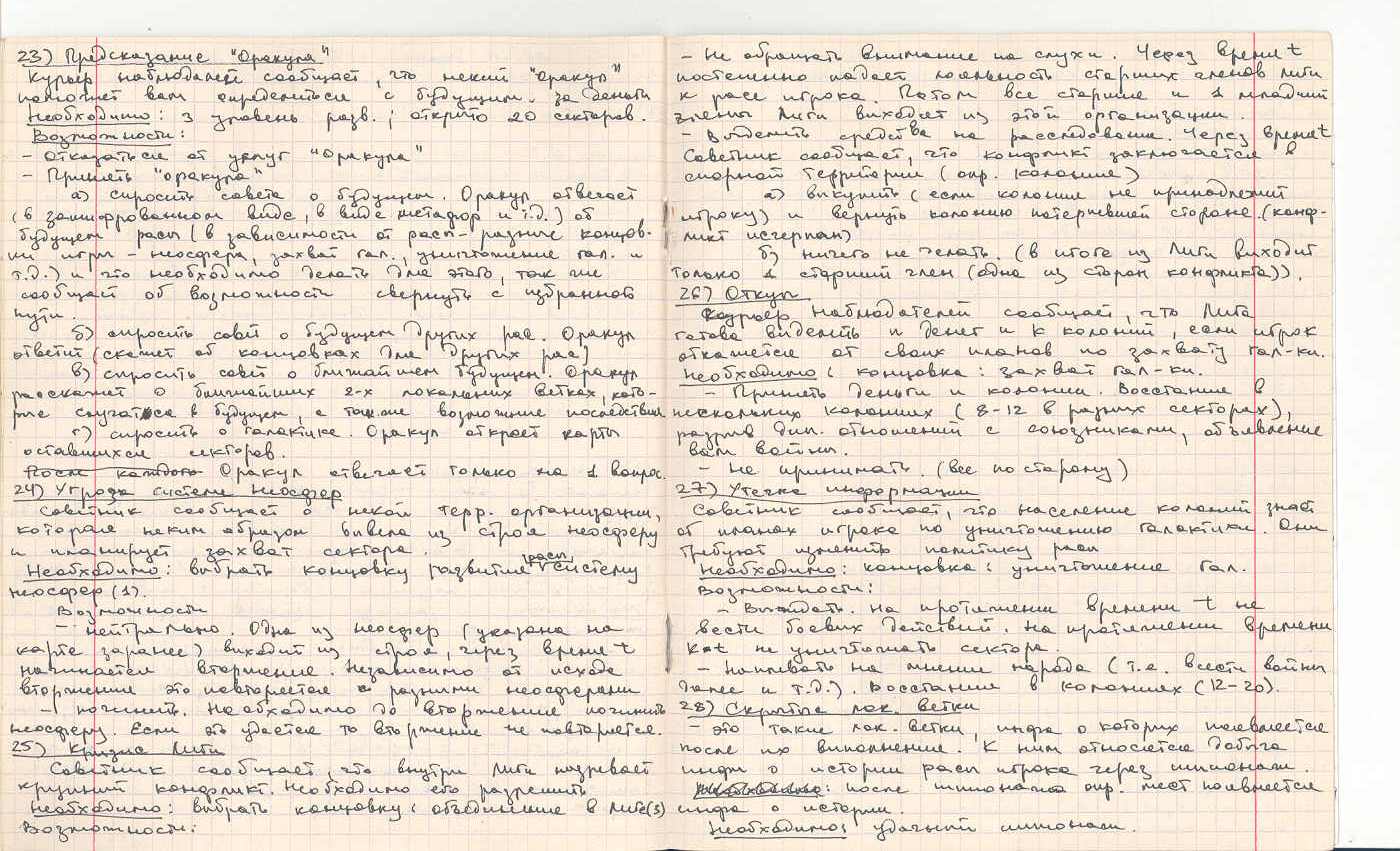 23) Предсказание "Оракула"
Курьер наблюдателей сообщает, что некий "Оракул"
поможет вам определиться с будущим. За деньги
Необходимо: 3 уровень разв.; открыто 20 секторов.
Возможности:
- Отказаться от услуг "Оракула"
- Принять "Оракула"
а) спросить совета о будущем. Оракул отвечает
(в зашифрованном виде, в виде метафор и т.д.) от
будущем расы (в зависимости от расы - разные концов-
ки игры - неосфера, захват гал., уничтожение гал. и
т.д.) и что необходимо делать для этого, так же
сообщает об возможности свернуть с избранного
пути.
б) спросить совет о будущем других рас. Оракул
ответит (скажет об концовках для других рас)
в) спросить совет о ближайшем будущем. Оракул
расскажет о ближайших 2-х локальных ветках, кото-
рые случатся в будущем, а также возможные последствия
г) спросить о галактике. Оракул откроет карты
оставшихся секторов.
После каждого Оракул отвечает только на 1 вопрос.
24) Угроза системе неосфер
Советник сообщает о некой терр. организации,
которая неким образом вывела из строя неосферу
и планирует захват сектора.
Необходимо: выбрать концовку развития расы, систему
неосфер (1).
Возможности
- нейтрально. Одна из неосфер (указана на
карте заранее) виходит из строя, через время t
начинается вторжение. Независимо от исхода
вторжения это повторяется с разными неосферами
- починить. Необходимо до вторжения починить
неосферу. Если это удается то вторжение не повторяется.
25) Кризис Лиги
Советник сообщает, что внутри Лиги назревает
кризиний конфликт. Необходимо его разрешить
Необходимо: выбрать концовку: объединение в Лигу(3)
Возможности:
- Не обращать внимание на слухи. Через время t
постепенно падает лояльность старших членов Лиги
к расе игрока. Потом все старшие и 1 младший
члены Лиги виходят из этой организации.
- Выделить средства на расследование. Через время t
Советник сообщает, что конфликт заключается в
спорной территории (опр. колония)
а) выкупить (если колония не принадлежит
игроку) и вернуть колонию потерпевшей стороне. (конф-
ликт исчерпан)
б) ничего не делать. (в итоге из Лиги виходит
только 1 старший член (одна из сторон конфликта)).
26) Откуп
Курьер Наблюдателей сообщает, что Лига
готова виделить n денег и k колоний, если игрок
откажется от своих планов по захвату гал-ки.
Необходимо: концовка: захват гал-ки.
- Принять деньги и колонии. Восстание в
нескольких колониях (8-12 в разных секторах),
разрыв дип. отношений с союзниками, объявление
вам войны.
- Не принимать. (все по старому)
27) Утечка информации
Советник сообщает, что население колоний знает
от планах игрока по уничтожению галактики. Они
требуют изменить политику расы
Необходимо: концовка: уничтожение гал.
Возможности:
- Выждать. На протяжении времени t не
вести боевых действий. На протяжении времени
k*t не уничтожать сектора.
- Наплевать на мнение народа (т.е. ввести войны
далее и т.д.). Восстания в колониях (12-20).
28) Скрытые лок. ветки
- это такие лок. ветки, инфа о которых появляется
после их виполнения. К ним относится добыча
инфы о истории расы игрока через шпионаж.
после шпионажа опр. мест появляется
инфа о истории.
Необходимо: удачный шпионаж.